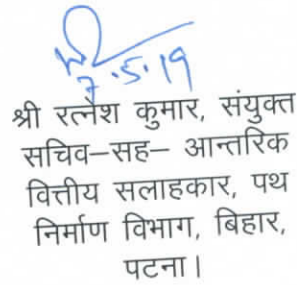 7.5.19
श्री रत्नेश कुमार, संयुक्त
सचिव–सह– आन्तरिक
वित्तीय सलाहकार, पथ
निर्माण विभाग, बिहार,
पटना।